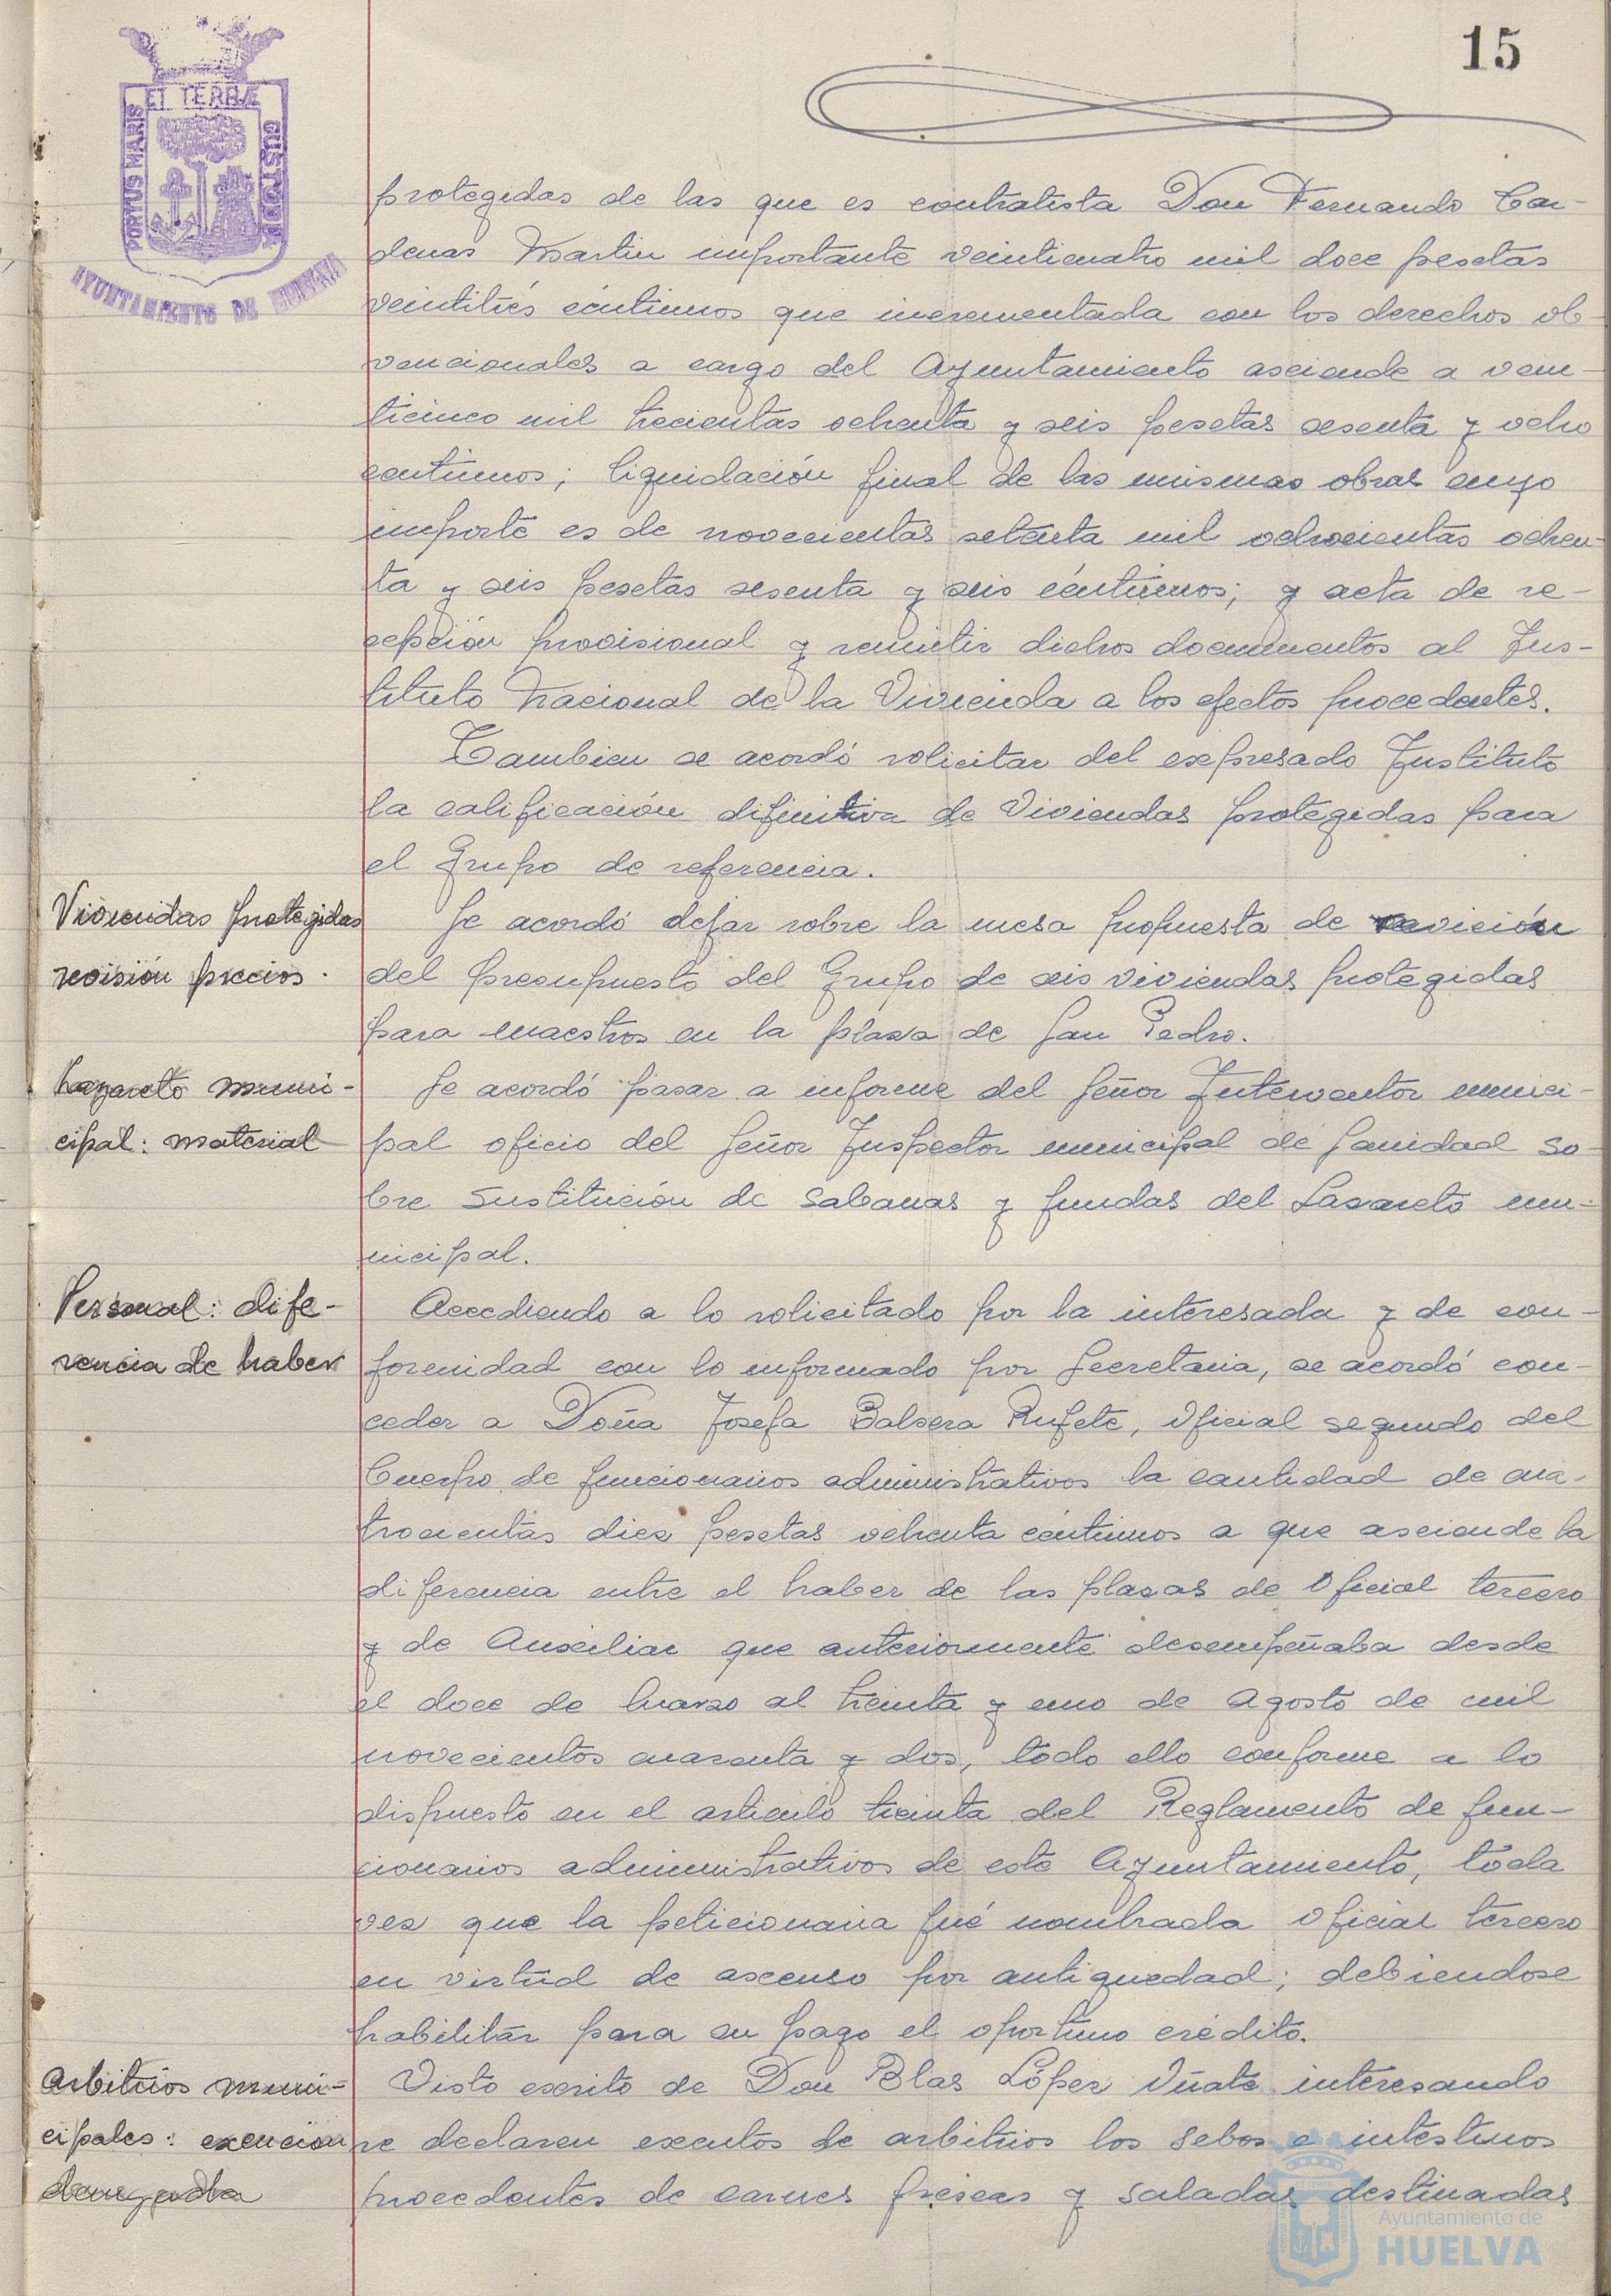 15
ET TERRÆ
PORTUS MARIS
CUSTODIA
AYUNTAMIENTO DE HUELVA
protegidas de las que es contratista Don Fernando Car-
denas Martin importante veinticuatro mil doce pesetas
veintitrés céntimos que incrementada con los derechos ob-
vencionales a cargo del Ayuntamiento asciende a vein-
ticinco mil trecientas ochenta y seis pesetas sesenta y ocho
centimos; liquidación final de las mismas obras cuyo
importe es de novecientas setenta mil ochocientas ochen-
ta y seis pesetas sesenta y seis céntimos; y acta de re-
cepción provisional y remitir dichos documentos al Ins-
tituto Nacional de la Vivienda a los efectos procedentes.
Tambien se acordó solicitar del expresado Instituto
la calificación difinitiva de Viviendas protegidas para
el Grupo de referencia.
Viviendas protegidas
revisión precios.
Se acordó dejar sobre la mesa propuesta de revición
del presupuesto del Grupo de seis viviendas protegidas
para maestros en la plaza de San Pedro.
Lazareto muni-
cipal: material
Se acordó pasar a informe del Señor Interventor munici-
pal oficio del Señor Inspector municipal de Sanidad so-
bre sustitución de sabanas y fundas del Lazareto mu-
nicipal.
Personal: dife-
rencia de haber
Accediendo a lo solicitado por la interesada y de con-
formidad con lo informado por Secretaria, se acordó con-
ceder a Doña Josefa Balsera Rufete, Oficial segundo del
Cuerpo de funcionarios administrativos la cantidad de cua-
trocientas diez pesetas ochenta céntimos a que asciende la
diferencia entre el haber de las plazas de Oficial tercero
y de Auxiliar que anteriormente desempeñaba desde
el doce de marzo al treinta y uno de Agosto de mil
novecientos cuarenta y dos, todo ello conforme a lo
dispuesto en el articulo treinta del Reglamento de fun-
cionarios administrativos de este Ayuntamiento, toda
vez que la peticionaria fué nombrada Oficial tercero
en virtud de ascenso por antiguedad; debiendose
habilitar para su pago el oportuno crédito.
Arbitrios muni-
cipales: exencion
denegada
Visto escrito de Don Blas López Uñate interesando
se declaren exentos de arbitrios los sebos e intestinos
procedentes de carnes frescas y saladas destinadas
Ayuntamiento de
HUELVA